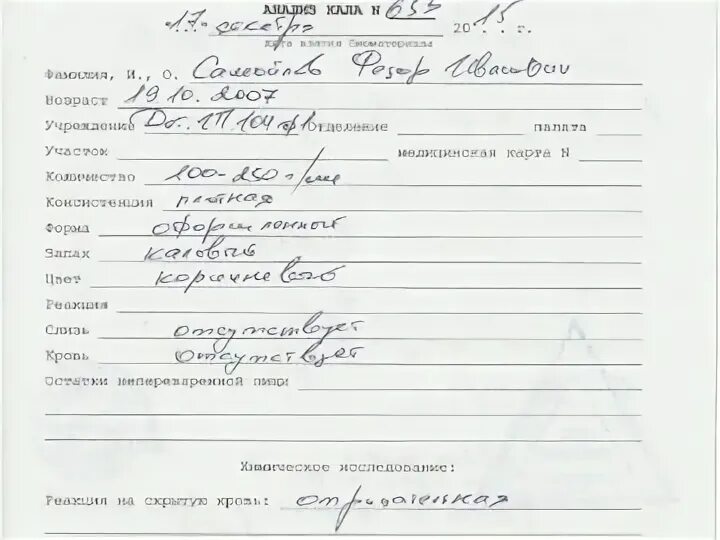 АНАЛИЗ КАЛА N 653
"17" декабря 2015 г.
дата взятия биоматериала
Фамилия, И., О. Самойлов Федор Иванович
Возраст 19.10.2007
Учреждение ГП 104 отделение палата
Участок медицинская карта N
Количество 100-250 г/
Консистенция плотная
Форма оформленный
Запах каловый
Цвет коричневый
Реакция
Слизь отсутствует
Кровь отсутствует
Остатки непереваренной пищи
Химическое исследование:
Реакция на скрытую кровь: отрицательная